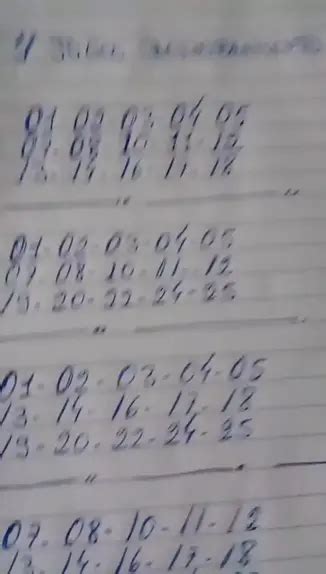 01 02 03 04 05
07 08 10 11 12
13 · 14 · 16 · 17 · 18
01 - 02 - 03 - 04 05
07 · 08 - 10 - 11 · 12
19 - 20 - 22 - 24 - 25
01 - 02 - 03 - 04 - 05
13 · 14 - 16 · 17 · 18
19 - 20 - 22 - 24 - 25
07 · 08 - 10 - 11 - 12
13 · 14 - 16 - 17 - 18